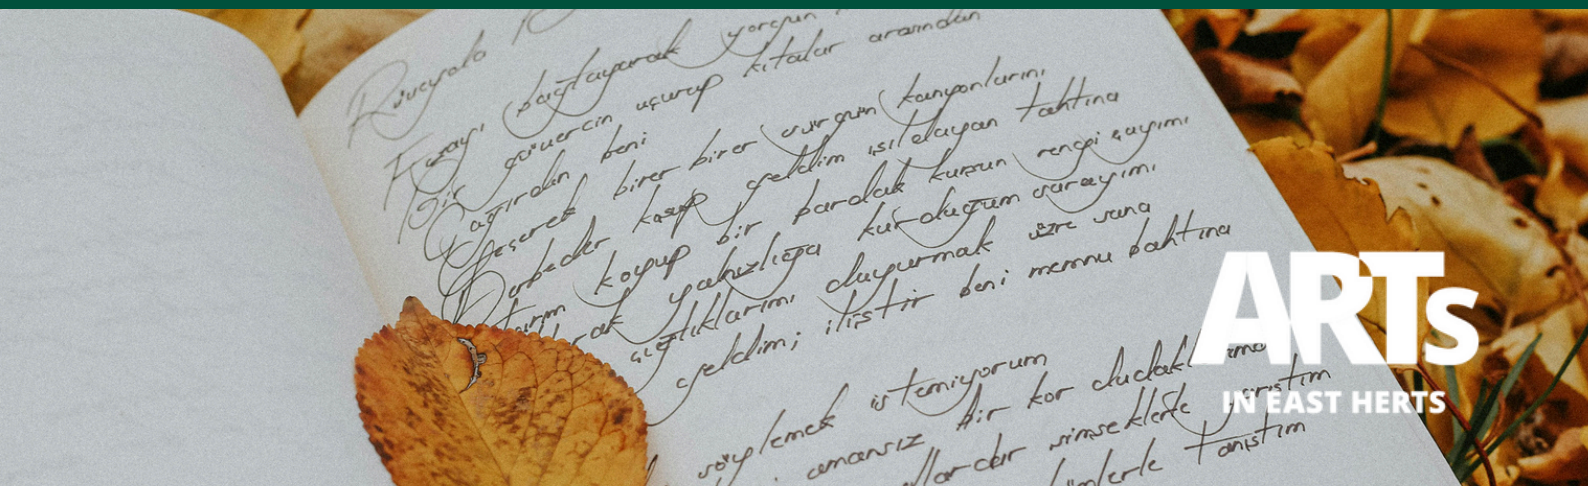 Rüveyda
Kuzayı bağtayarak yorgun
Bir güvercin uçurup kıtalar arasından
Çağırdan beni
Geçerek birer birer sürgün kanyonlarını
Derbeder koşup geldim ışıldayan tahtına
Yarım koyup bir bardak kurşun rengi çayımı
rak yalnızlığa kurduğum sarayımı
açtıklarımı duyurmak üzre sana
geldim; iliştir beni memnu bahtına
söylemek istemiyorum
amansız bir kor dudakl
lardır şimşeklerle yarıştım
ümlerle tanıştım
ARTs
IN EAST HERTS